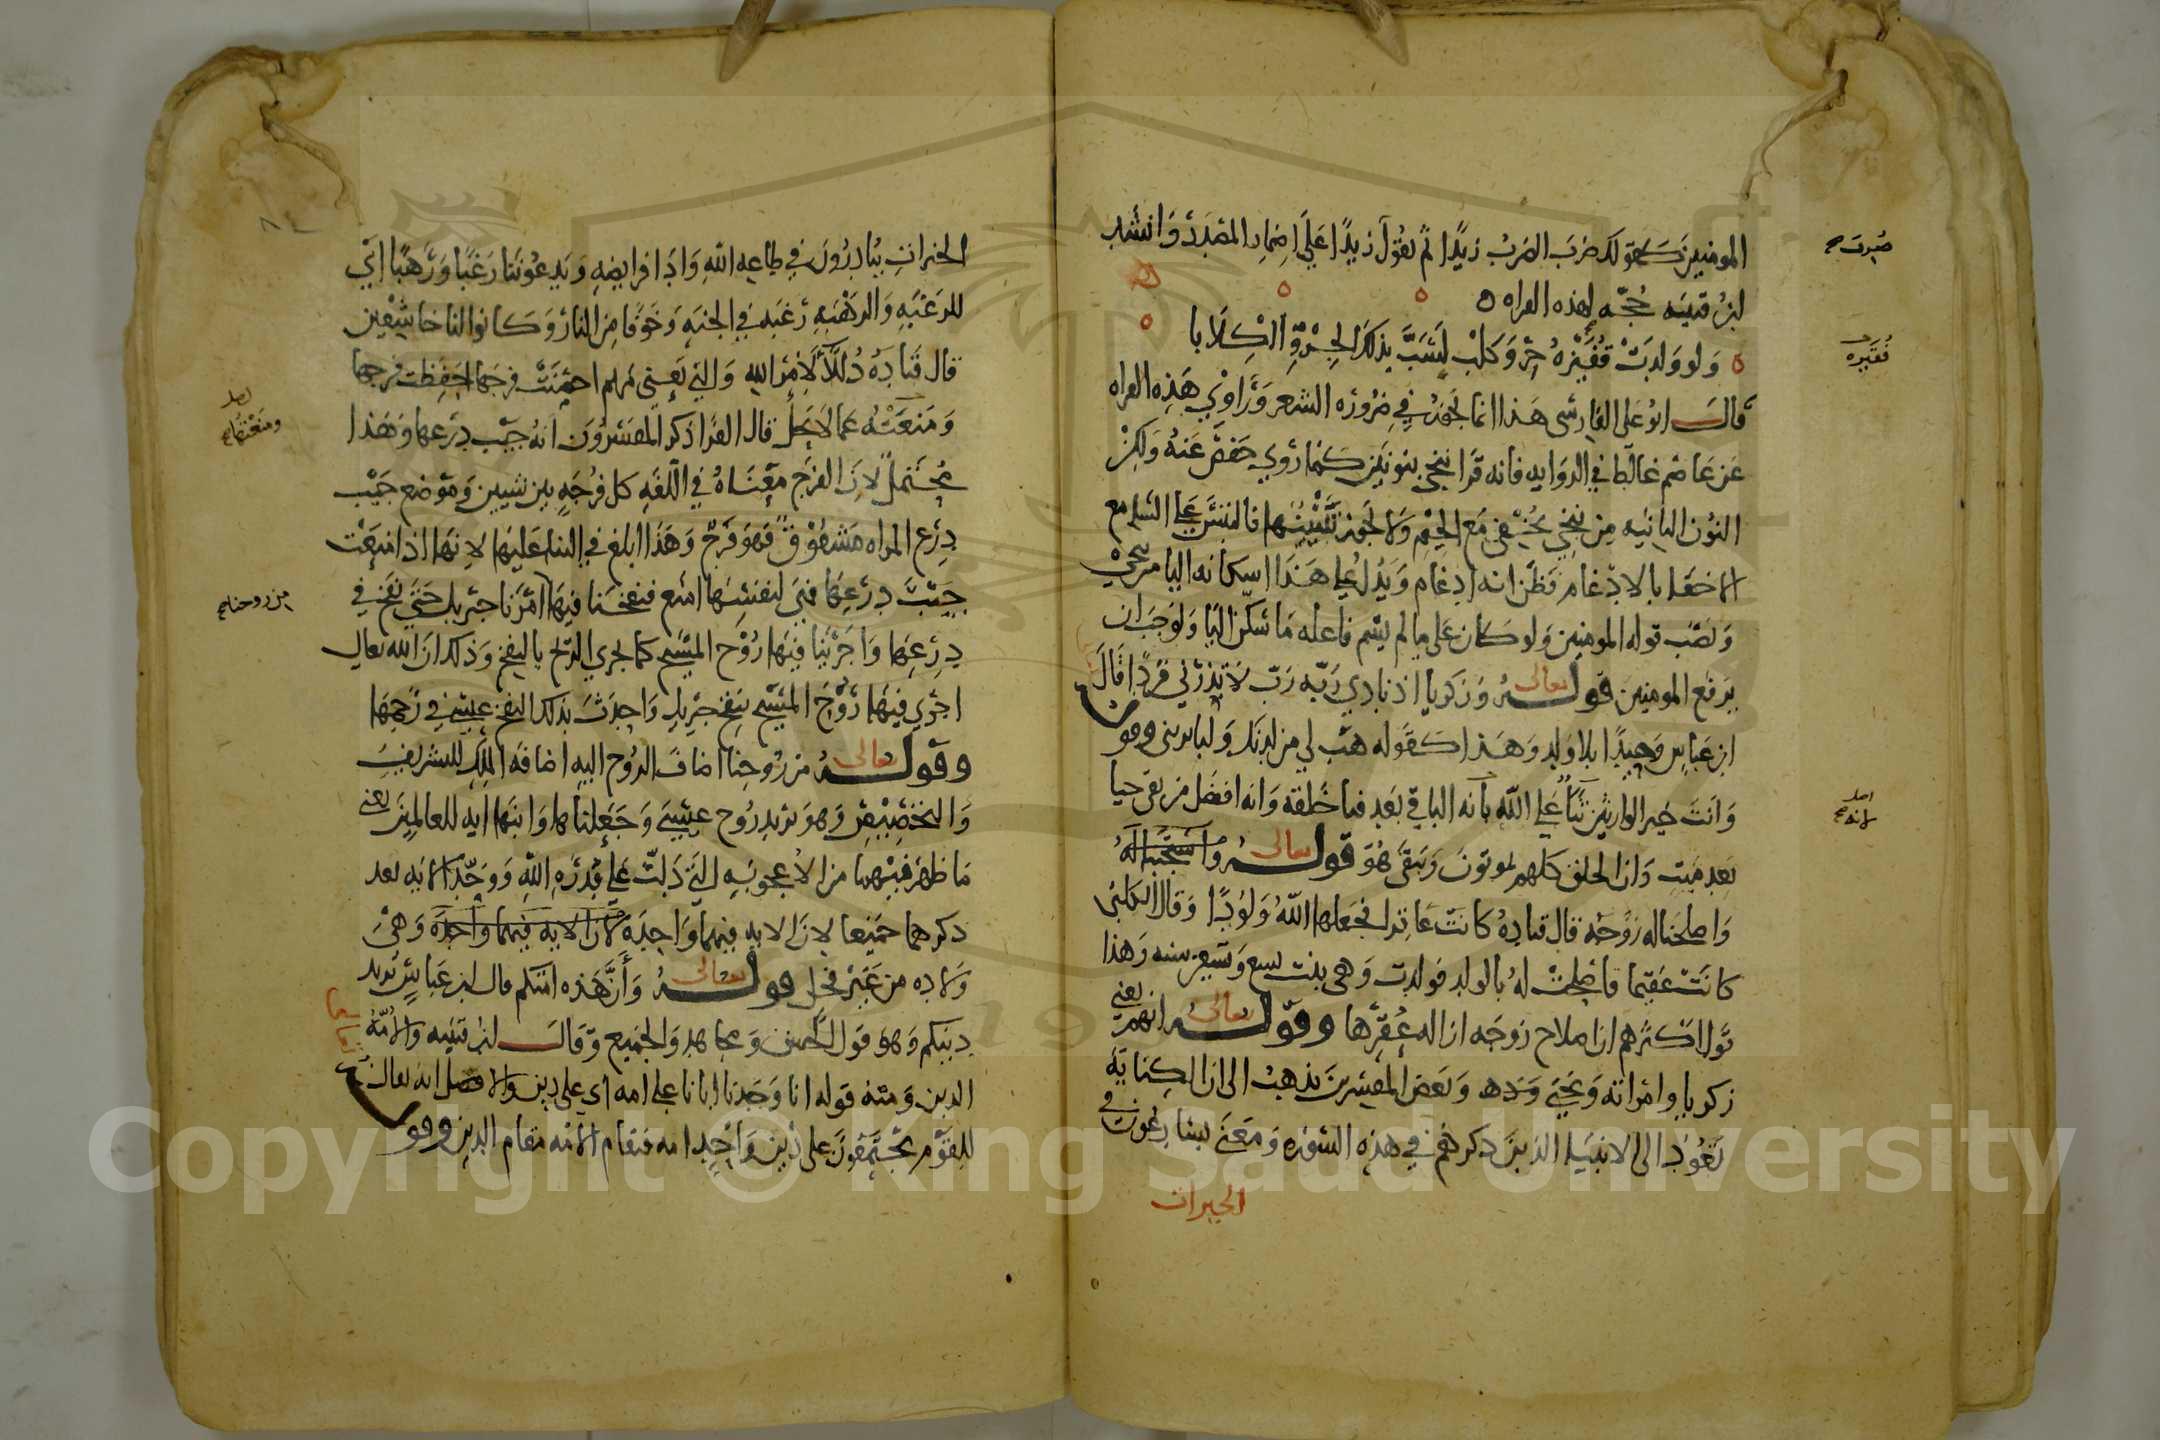 المومنين كقولك ضرب الضرب زيدا ثم يقول زيدا على اضمار المصدر وانشد
ابن قتيبه حجه لهذه القراه
ولو ولدت فقيره جرو كلب لسب بذلك الجرو الكلابا
قال ابو على الفارسى هذا انما يجوز في ضروره الشعر وراوي هذه القراه
عن عاصم غالط في الروايه فانه قرا ننجي بنونين كما روي حفص عنه ولكن
النون الثانيه من ننجي تخفى مع الجيم ولا يجوز تبيينها فالتبس على السامع
الاخفا بالادغام فظن انه ادغام ويدل على هذا اسكانه اليا من نجي
ونصب قوله المومنين ولو كان على ما لم يسم فاعله ما سكن اليا ولوجب ان
يرفع المومنين قوله تعالى وزكريا اذ نادي ربه رب لا تذرني فردا قال
ابن عباس وحيدا بلا ولد وهذا كقوله هب لي من لدنك وليا يرثني وهو
وانت خير الوارثين ثنا على الله بانه الباقي بعد فنا خلقه وانه افضل من بقى حيا
بعد ميت وان الخلق كلهم يموتون ويبقى هو قوله تعالى واستجبنا له
واصلحنا له زوجه قال قتاده كانت عاقرا فجعلها الله ولودا وقال الكلبى
كانت عقيما فاصلحت له بالولد فولدت وهى بنت تسع وتسعين سنه وهذا
قول اكثرهم ان اصلاح زوجه ازاله عقرها وقوله تعالى انهم يعني
زكريا وامراته ويحيى وبعض المفسرين يذهب الى ان الكنايه
تعود الى الانبيا الذين ذكرهم في هذه السوره ومعنى يسارعون في
الخيرات
ضرب صح
فقيره
اصل
لانه صح
الخيرات يبادرون في طاعه الله وادا فرايضه ويدعوننا رغبا ورهبا اي
للرغبه والرهبه رغبه في الجنه وخوفا من النار وكانوا لنا خاشعين
قال قتاده ذللا لامر الله والتي يعني مريم احصنت فرجها حفظت فرجها
ومنعته عما لا يحل قال الفرا ذكر المفسرون انه جيب درعها وهذا
محتمل لان الفرج معناه في اللغه كل فرجه بين شيين وموضع جيب
درع المراه مشقوق فهو فرج وهذا ابلغ في الثنا عليها لانها اذا منعت
جيب درعها فهي لنفسها امنع فنفخنا فيها امرنا جبريل حتى نفخ في
درعها واجرينا فيها روح المسيح كما يجري الريح بالنفخ وذلك ان الله تعالى
اجري فيها روح المسيح بنفخ جبريل واحدث بذلك النفخ عيسى في رحمها
وقوله تعالى من روحنا اضاف الروح اليه اضافه الملك للتشريف
والتخصيص وهو يريد روح عيسى وجعلناها وابنها ايه للعالمين يعنى
ما ظهر فيهما من الاعجوبه التي دلت على قدره الله ووحد الايه بعد
ذكرهما جميعا لان الايه فيهما واحده لان الايه فيهما واحده وهى
ولاده من غير فحل قوله تعالى وان هذه امتكم قال ابن عباس يريد
دينكم وهو قول الحسن ومجاهد والجميع وقال ابن قتيبه والامه
الدين ومنه قوله انا وجدنا ابانا على امه اي على دين والاصل انه يقال
للقوم يجتمعون على دين واحد امه فتقام الامه مقام الدين وهو
لعله
ومنعتها
من روحنا صح